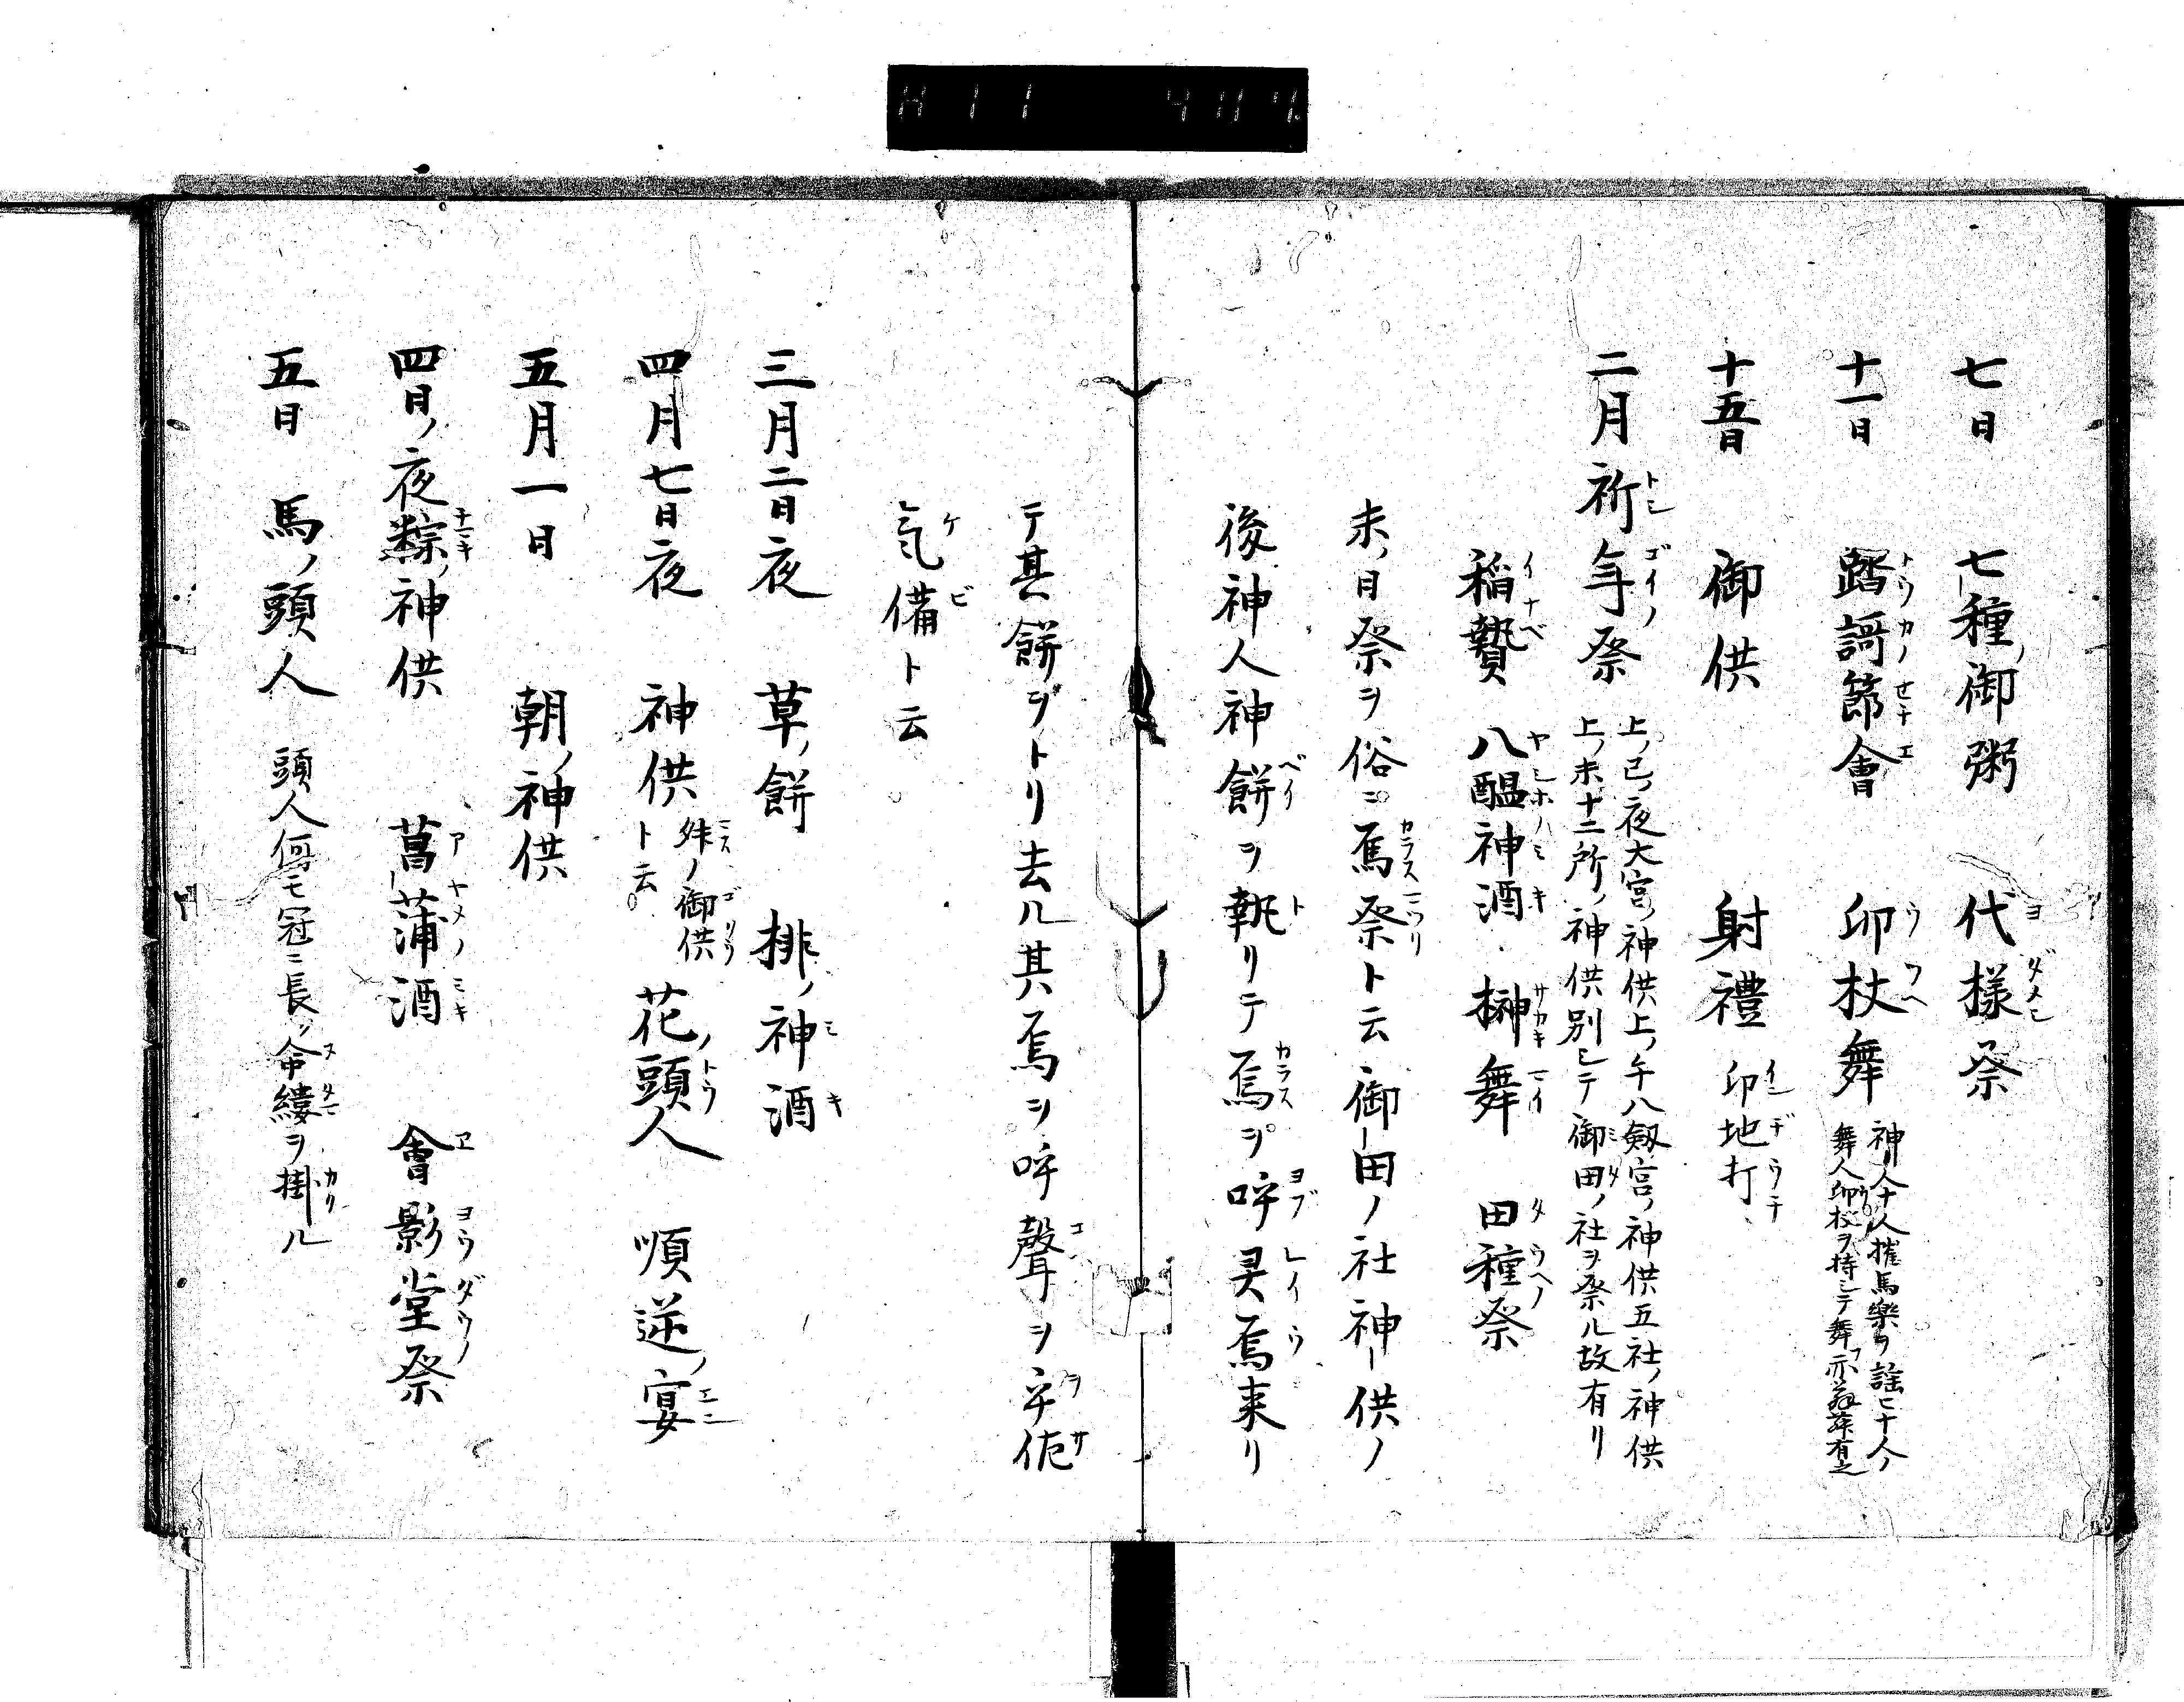 七日 七種ノ御粥 代様祭
十一日 踏謌ノ節會 卯杖舞 神人十人催馬樂ヲ謡ヒ十人ノ
舞人卯杖ヲ持シテ舞フ亦有之
十五日 御供 射禮 印地打
二月 祈年祭 上ノ巳ノ夜大宮ノ神供上ノ午八劔宮ノ神供五社ノ神供
上ノ未十二所ノ神供別シテ御田ノ社ヲ祭ル故有リ
稲贄 八醞神酒 榊舞 田種祭
未ノ日祭ヲ俗ニ烏祭ト云御田ノ社神供ノ
後神人神餅ヲ執リテ烏ヲ呼霊烏来リ
テ其餅ヲトリ去ル其烏ヲ呼聲ヲ
氣備ト云
三月二日夜 草ノ餅 桃ノ神酒
四月七日夜 神供 ノ御供
ト云 花ノ頭人 順逆ノ宴
五月一日 朝ノ神供
四日ノ夜粽ノ神供 菖蒲酒 會影堂祭
五日 馬ノ頭人 頭人何モ冠ニ長ノ命縷ヲ掛ル